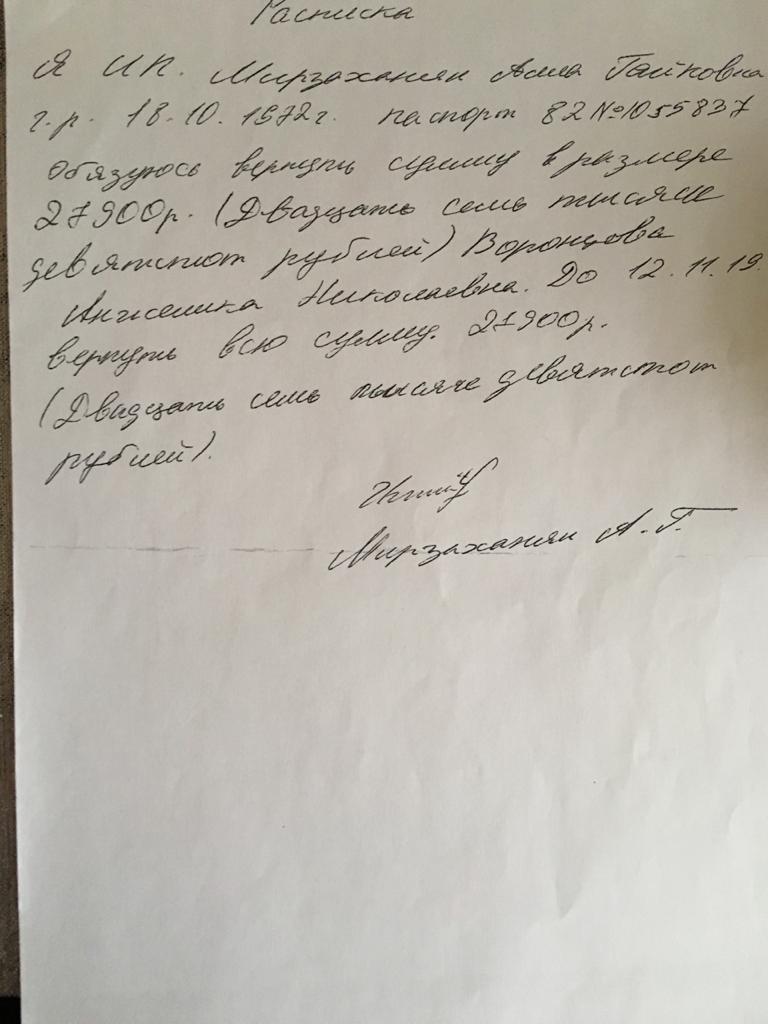 Расписка
Я ИП. Мирзаханян Алла Гайковна
г.р. 18.10.1972г. паспорт 82 №1055837
обязуюсь вернуть сумму в размере
27900р. (Двадцать семь тысяче
девятстот рублей) Воронцова
Анжелика Николаевна. До 12.11.19.
вернуть всю сумму. 27900р.
(Двадцать семь тысяче девятстот
рублей).
Мирзаханян А.Г.